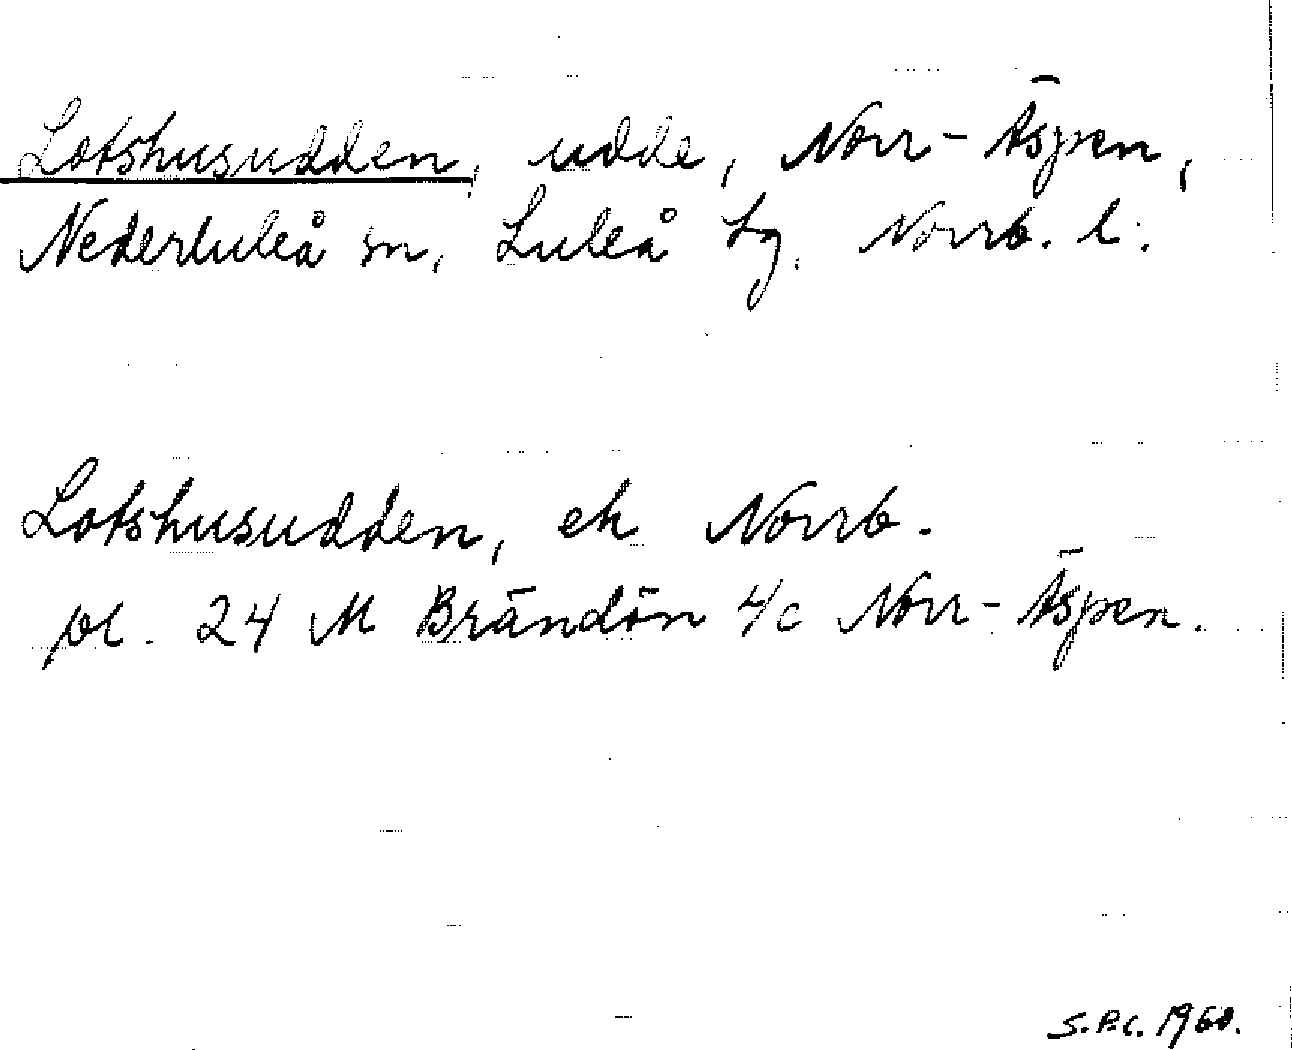 Lotshusudden, udde, Norr-Äspen,
Nederluleå sn, Luleå tg, Norrb. l.
Lotshusudden, ek Norrb.
bl. 24 M Brändön 4/c Norr-Äspen.
S.P.C. 1960.